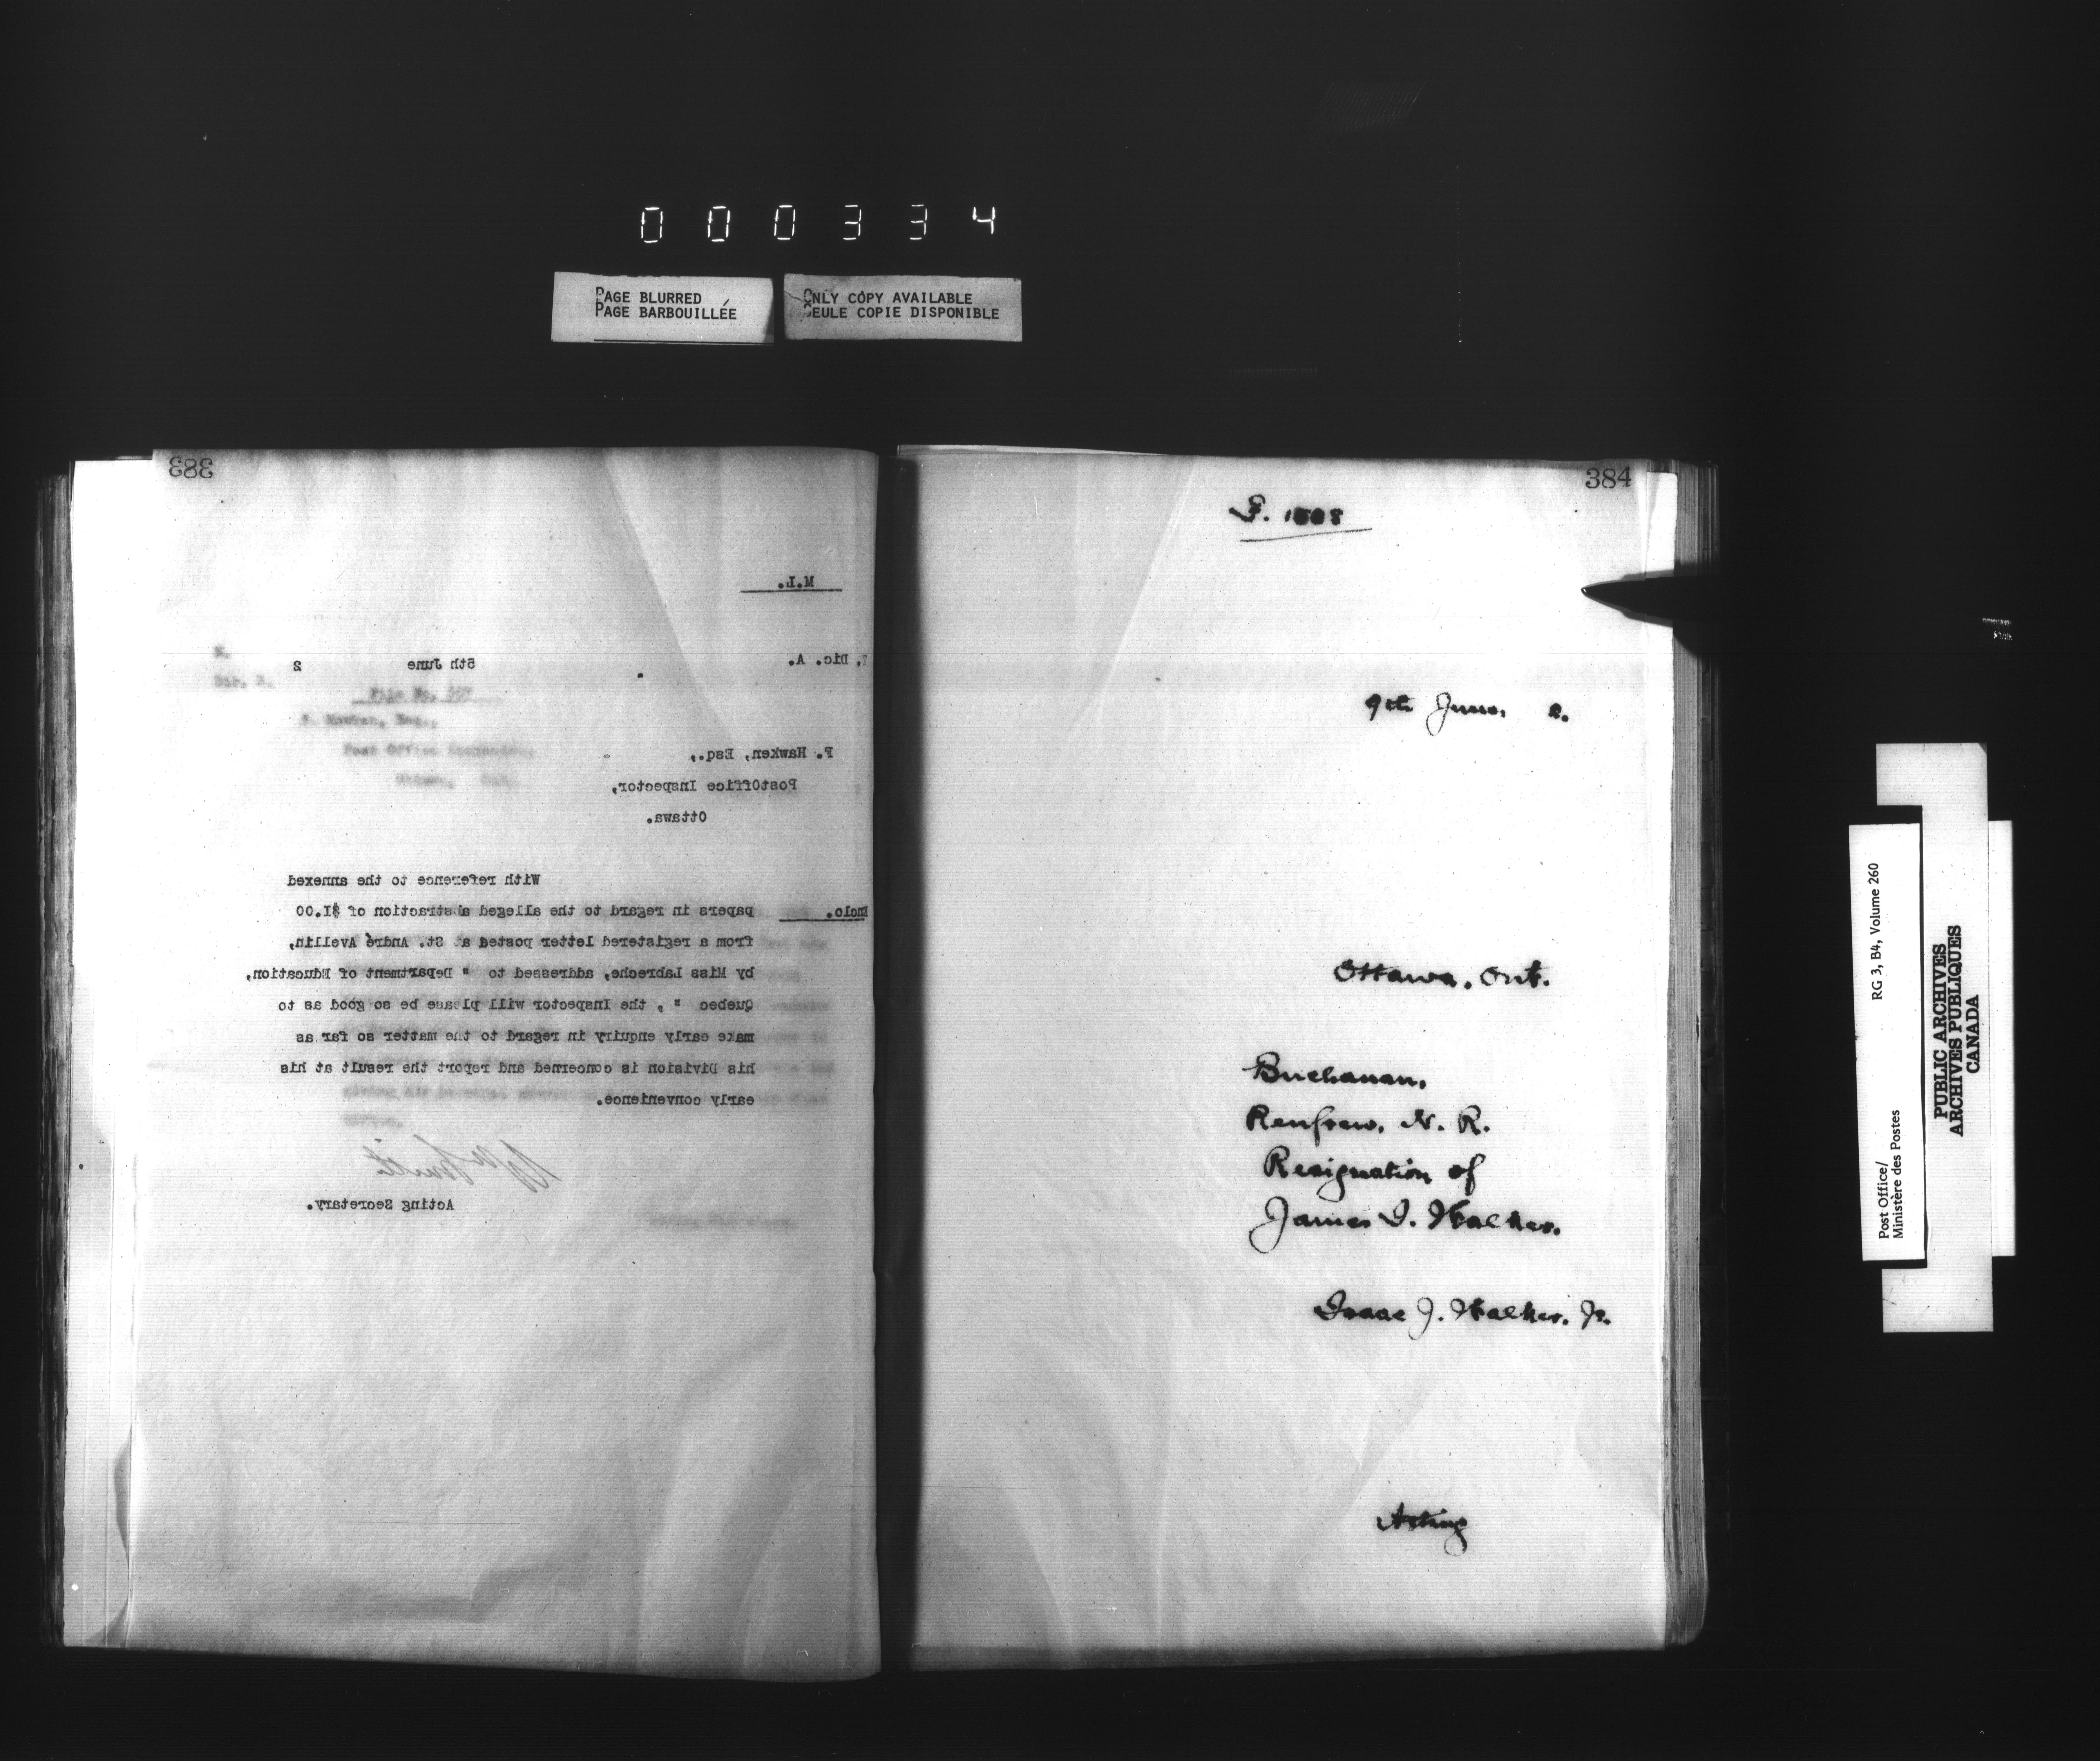 000334
PAGE BLURRED
PAGE BARBOUILLÉE
ONLY COPY AVAILABLE
SEULE COPIE DISPONIBLE
383
M.L.
Dic. A.
5th June 2
File No.
F. Hawken, Esq.,
PostOffice Inspector,
Ottawa.
With reference to the annexed
Enclo. papers in regard to the alleged abstraction of $1.00
from a registered letter posted at St. André Avellin,
by Miss Labreche, addressed to " Department of Education,
Quebec " , the Inspector will please be so good as to
make early enquiry in regard to the matter so far as
his Division is concerned and report the result at his
early convenience.
Smith
Acting Secretary.
384
9th June, 2.
Ottawa, Ont.
Buchanan,
Renfrew, N. R.
Resignation of
James I. Walker.
Isaac J. Walker, Jr.
Acting
RG 3, B4, Volume 260
Post Office/
Ministère des Postes
PUBLIC ARCHIVES
ARCHIVES PUBLIQUES
CANADA